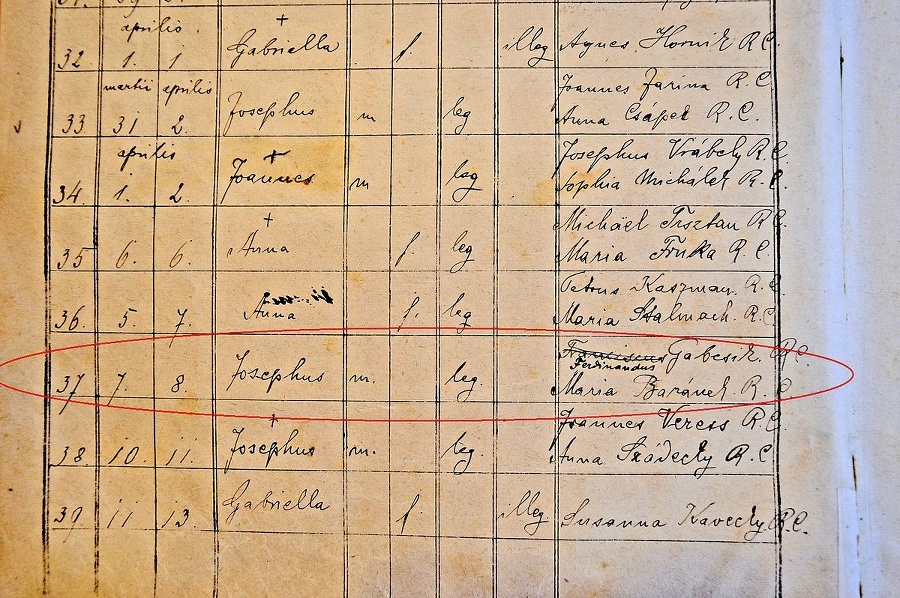 aprilis.
32 1. 1 Gabriella f. illeg Agnes Hornik R.C.
martii aprilis Joannes Farina R.C.
33 31 2. Josephus m leg Anna Csápek R.C.
aprilis Josephus Vrábely R.C.
34 1. 2 Joannes m leg Sophia Michálek R.C.
Michäel Trsztan R.C.
35 6. 6. Anna f. leg Maria Fruka R.C.
Petrus Kaszman. R.C.
36. 5. 7. Anna f. leg Maria Stalmach. R.C.
Franciscus Gabcsik. R.C.
Ferdinandus
37 7. 8. Josephus m. leg. Maria Baránek R.C
Joannes Veress R.C.
38. 10. 11. Josephus m. leg. Anna Szádecky R.C.
39 11 13. Gabriella f. illeg Susanna Kavecky R.C.